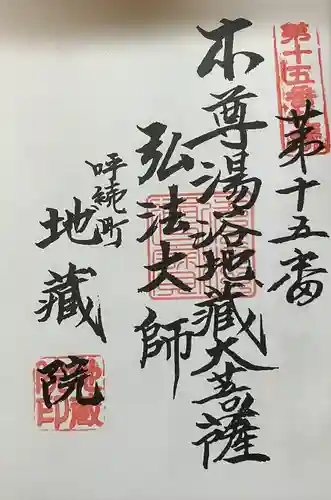 第十五番
本尊湯浴地蔵大菩薩
弘法大師
呼続町
地蔵院